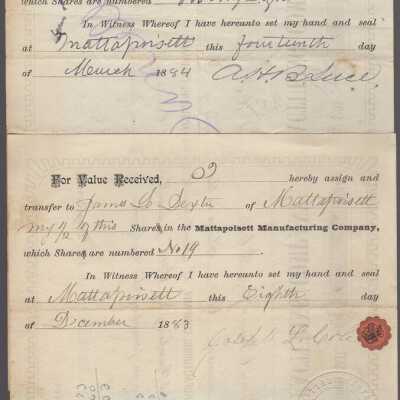 which Shares are numbered
In Witness Whereof I have hereunto set my hand and seal
at Mattapoisett this fourteenth day
of March 1884 A. H. B. Luce
For Value Received, I hereby assign and
transfer to James L. Dexter of Mattapoisett
my 1/2 of this Shares in the Mattapoisett Manufacturing Company,
which Shares are numbered No 19.
In Witness Whereof I have hereunto set my hand and seal
at Mattapoisett this Eighth day
of December 1883
Joseph L. Cole